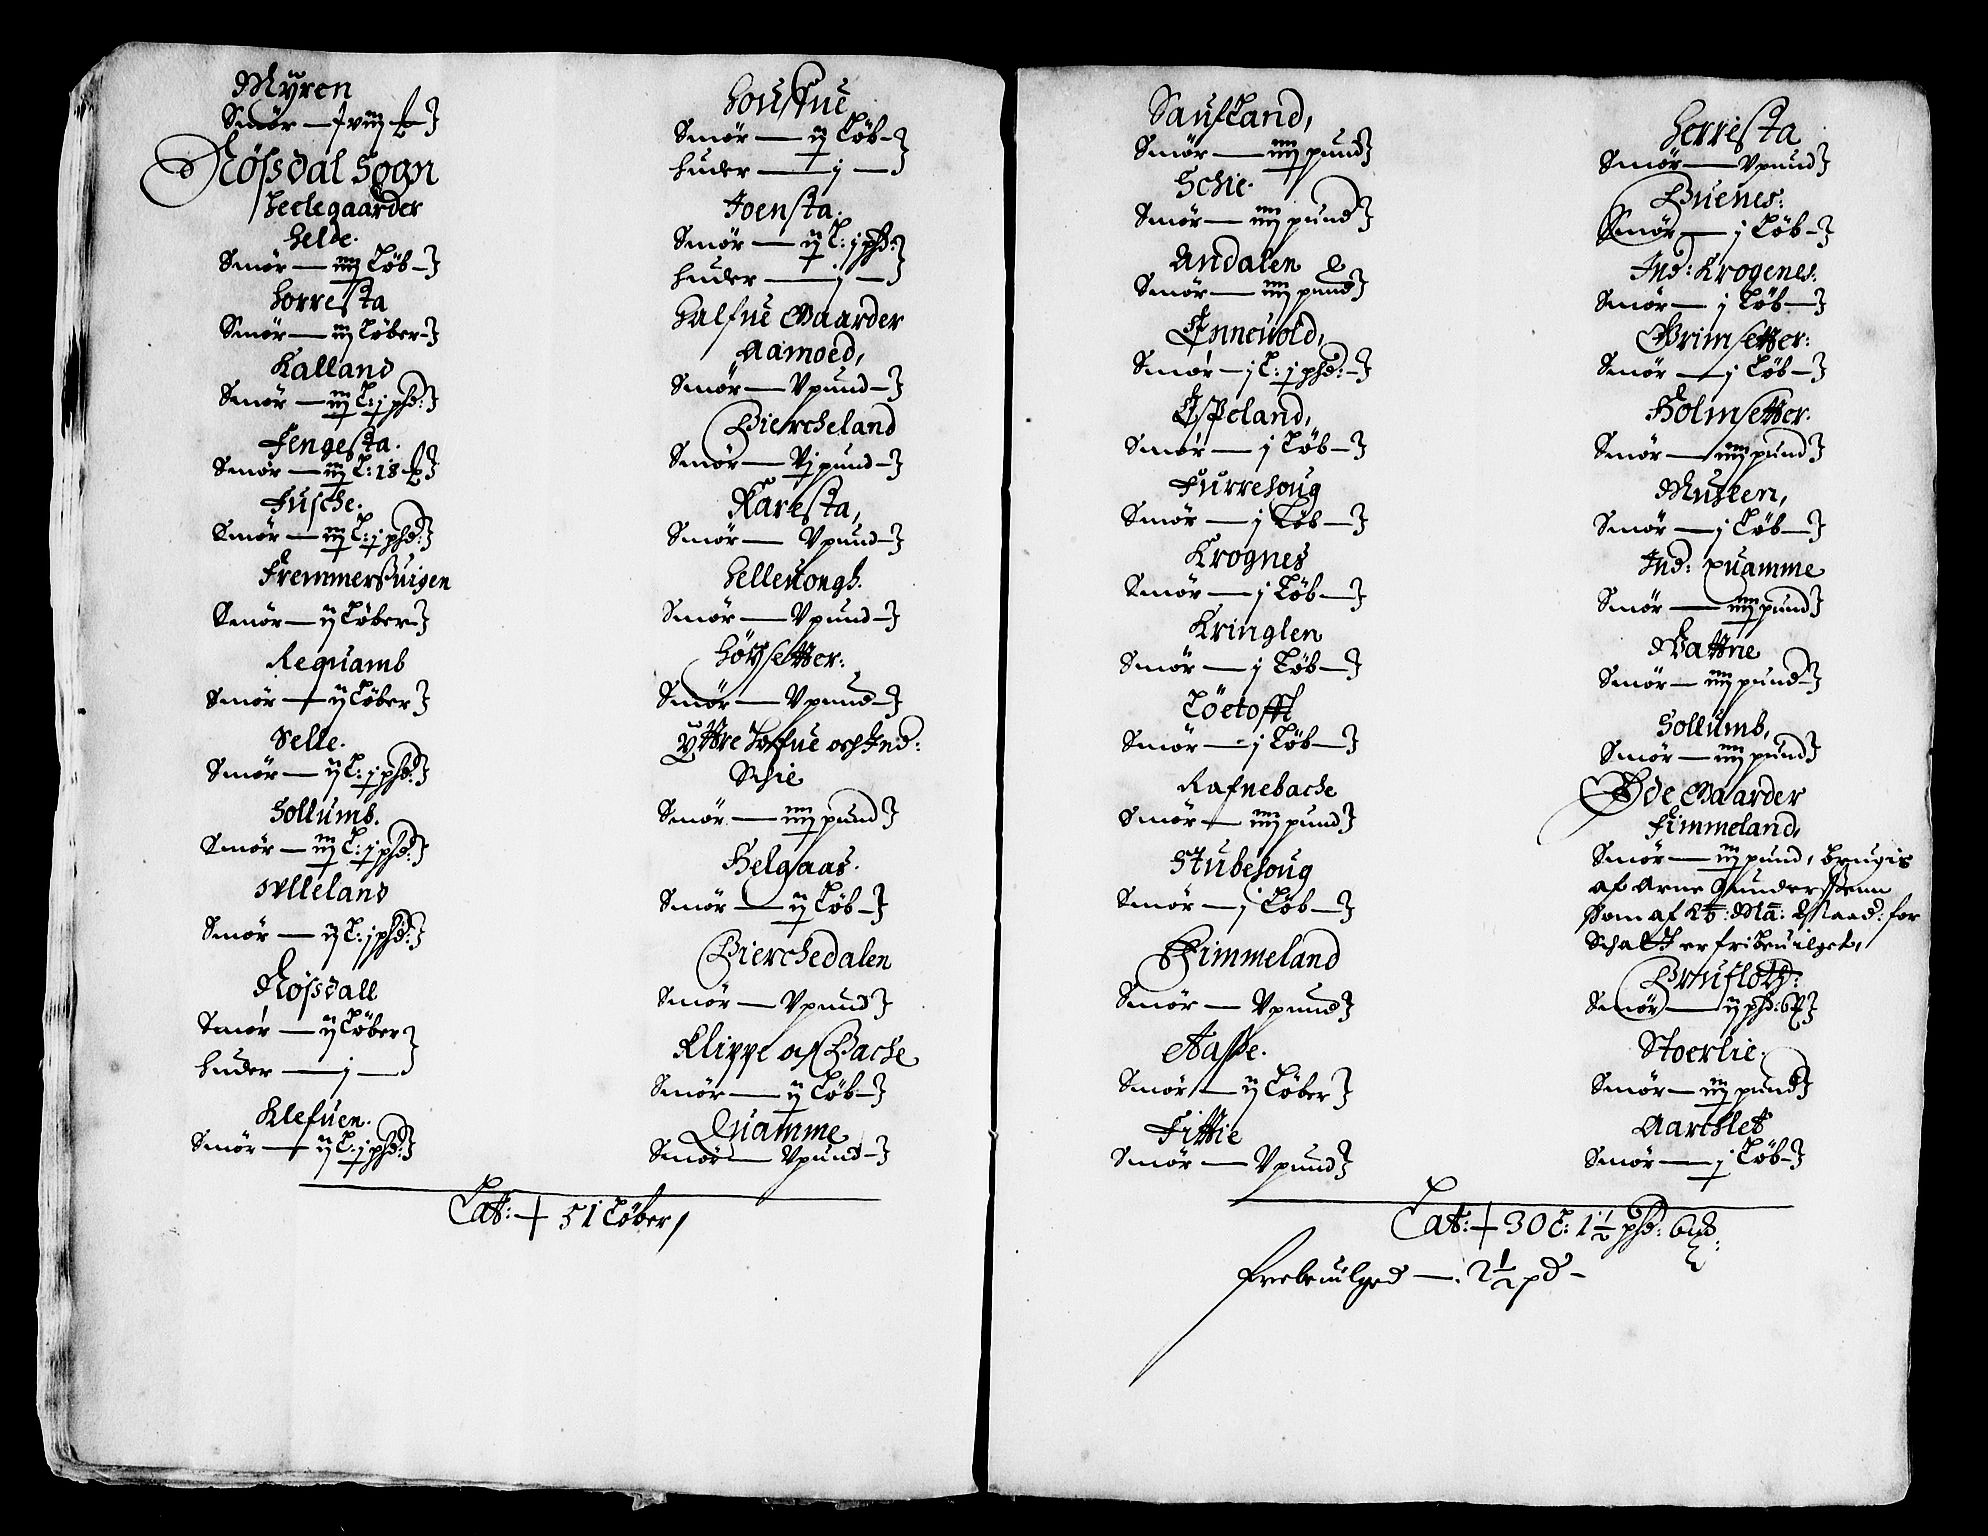 Myren
Smör — viij ℔
Rösdal Sogn
heelegaarder
helde.
Smör — iiij Löb —
horresta
Smör — iij Löber —
Kalland
Smör — iij L: j phd:
Fengesta.
Smör — iij L: 18 ℔
Fusche.
Smör — iij L: j phd:
Fremmersuigen
Smör — ij Löber —
Requamb
Smör — ij Löber
Selle.
Smör — ij L: j phd:
hollumb.
Smör — iij L: j phd:
Ylleland
Smör — ij L: j phd:
Rösdall
Smör — ij Löber
huder — j —
Klefuen.
Smör — ij L: j phd:
housfue
Smör — ij Löb —
huder — j —
Joensta.
Smör — ij L: j phd:
huder — j —
halfue Gaarder
Aamoed,
Smör — V pund —
Biercheland
Smör — Vj pund —
Karesta,
Smör — V pund —
hellestongh.
Smör — V pund —
höysetter:
Smör — V pund —
Yttre hosfue och Ind:
Schie
Smör — iiij pund
Helgaas.
Smör — ij Löb —
Bierchedalen
Smör — V pund
Klippe och Bache
Smör — ij Löb —
Quamme
Smör — V pund —
Lat: — 51 Löber
Saufland,
Smör — iiij pund
Schie.
Smör — iiij pund
Andalen
Smör — iiij pund
Ennevold,
Smör — j L: j phd: —
Espeland,
Smör — j Löb —
Furrehoug
Smör — j Löb —
Krognes
Smör — j Löb —
Kringlen
Smör — j Löb —
Löetofft
Smör — j Löb —
Rafnebache
Smör — iiij pund
Stubehoug
Smör — j Löb —
Fimmeland
Smör — V pund
Aasse.
Smör — ij Löber
Fittie
Smör — V pund
herresta
Smör — V pund
Buenes:
Smör — j Löb —
Ind: Krogenes:
Smör — j Löb —
Grimsetter:
Smör — j Löb —
Holmsetter.
Smör — iiij pund
Muhlen,
Smör — j Löb —
Ind: quamme
Smör — iiij pund
Vattne
Smör — iiij pund —
Hollumb,
Smör — iiij pund
Öde Gaarder
Fimmeland,
Smör — iij pund, brugis
af Arne Gunderssenn
som af Kō: Ma: Naad: for
Schatt er fribeuilget,
Brufloth:
Smör — ij phd: 6
Stoerlie.
Smör — iij pund
Aarchlet
Smör — j Löb —
Lat: — 30 L: 1½ phd: 6
frebeuilged — 2½ pd —